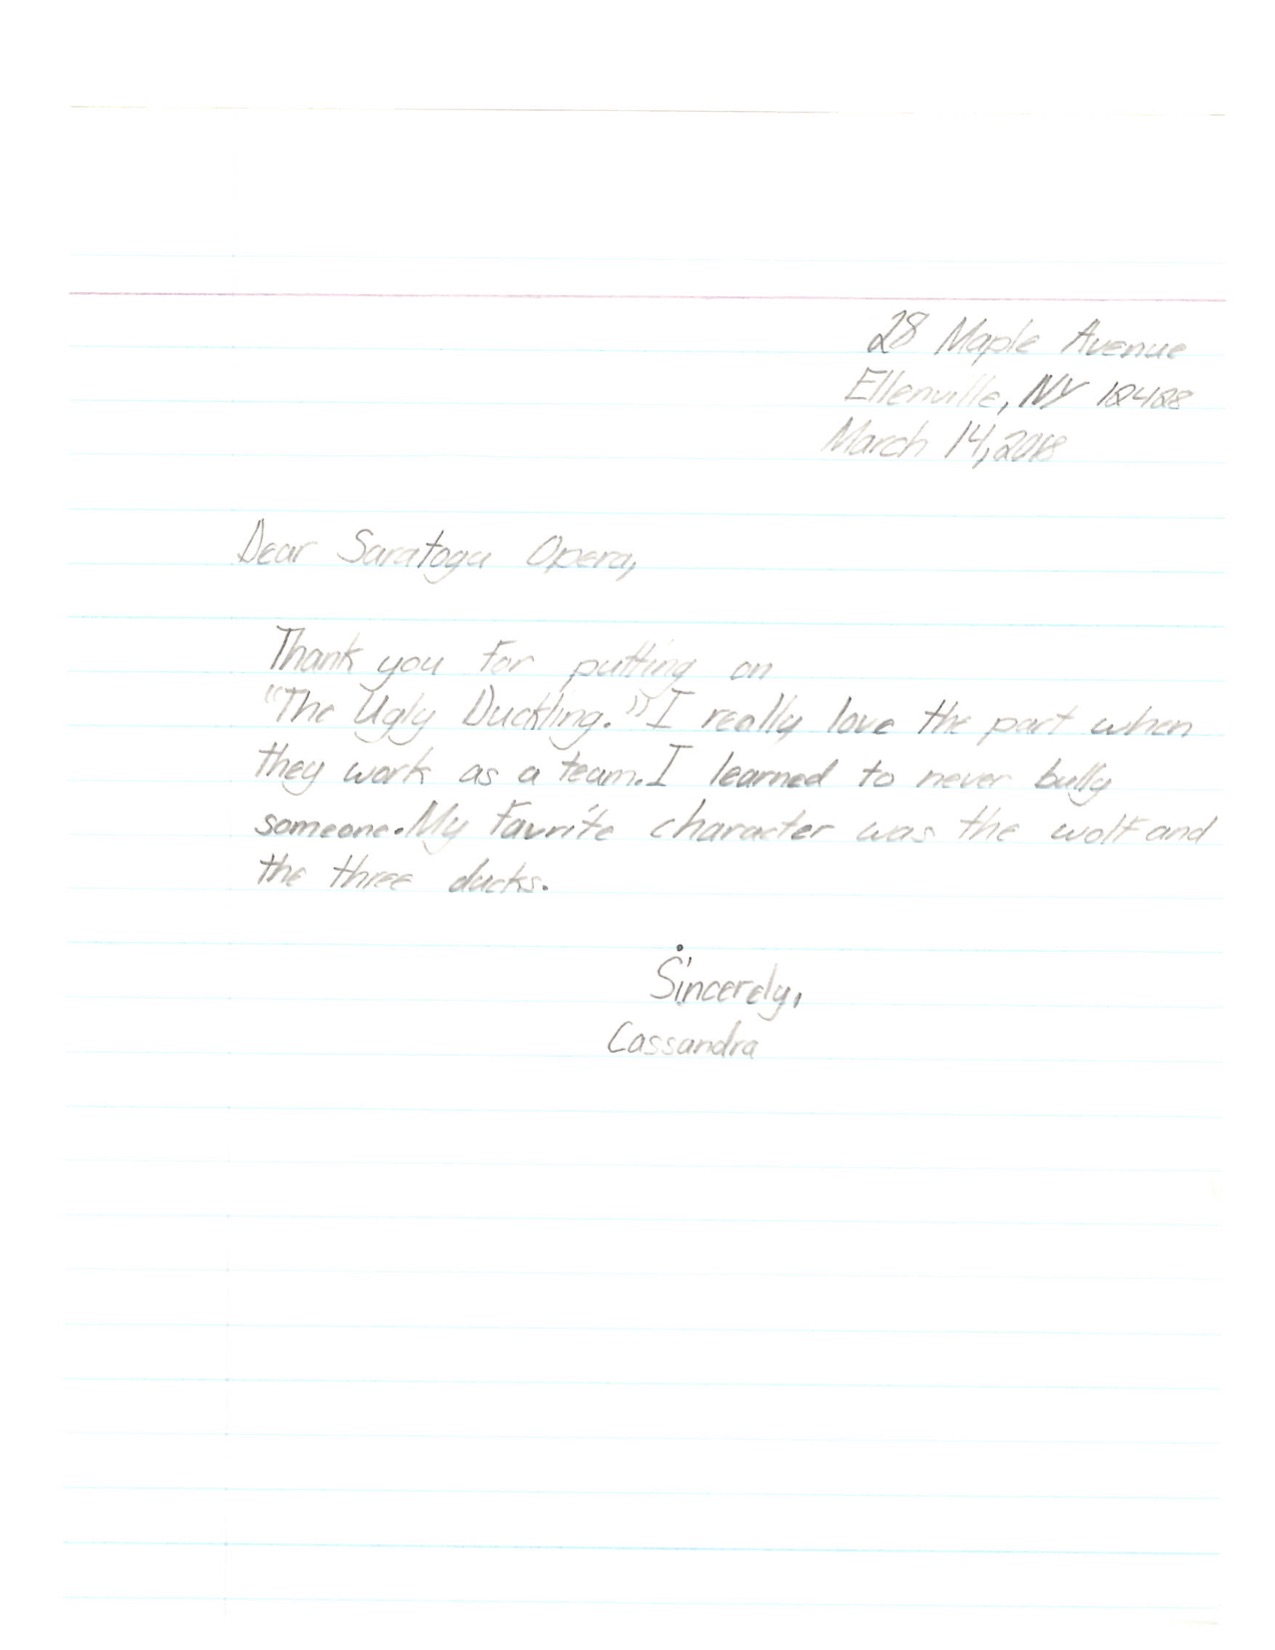 28 Maple Avenue
Ellenville, NY 12428
March 14, 2018
Dear Saratoga Opera,
Thank you for putting on
"The Ugly Duckling." I really love the part when
they work as a team. I learned to never bully
someone. My favrite character was the wolf and
the three ducks.
Sincerely,
Cassandra